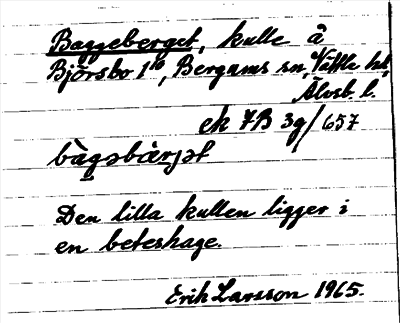 Baggeberget, kulle å
Björsbo 1¹⁰, Bergums sn, Vättle hd,
Älvsb. l.
ek 7B 3g/657
bàgəbàrjət
Den lilla kullen ligger i
en beteshage.
Erik Larsson 1965.